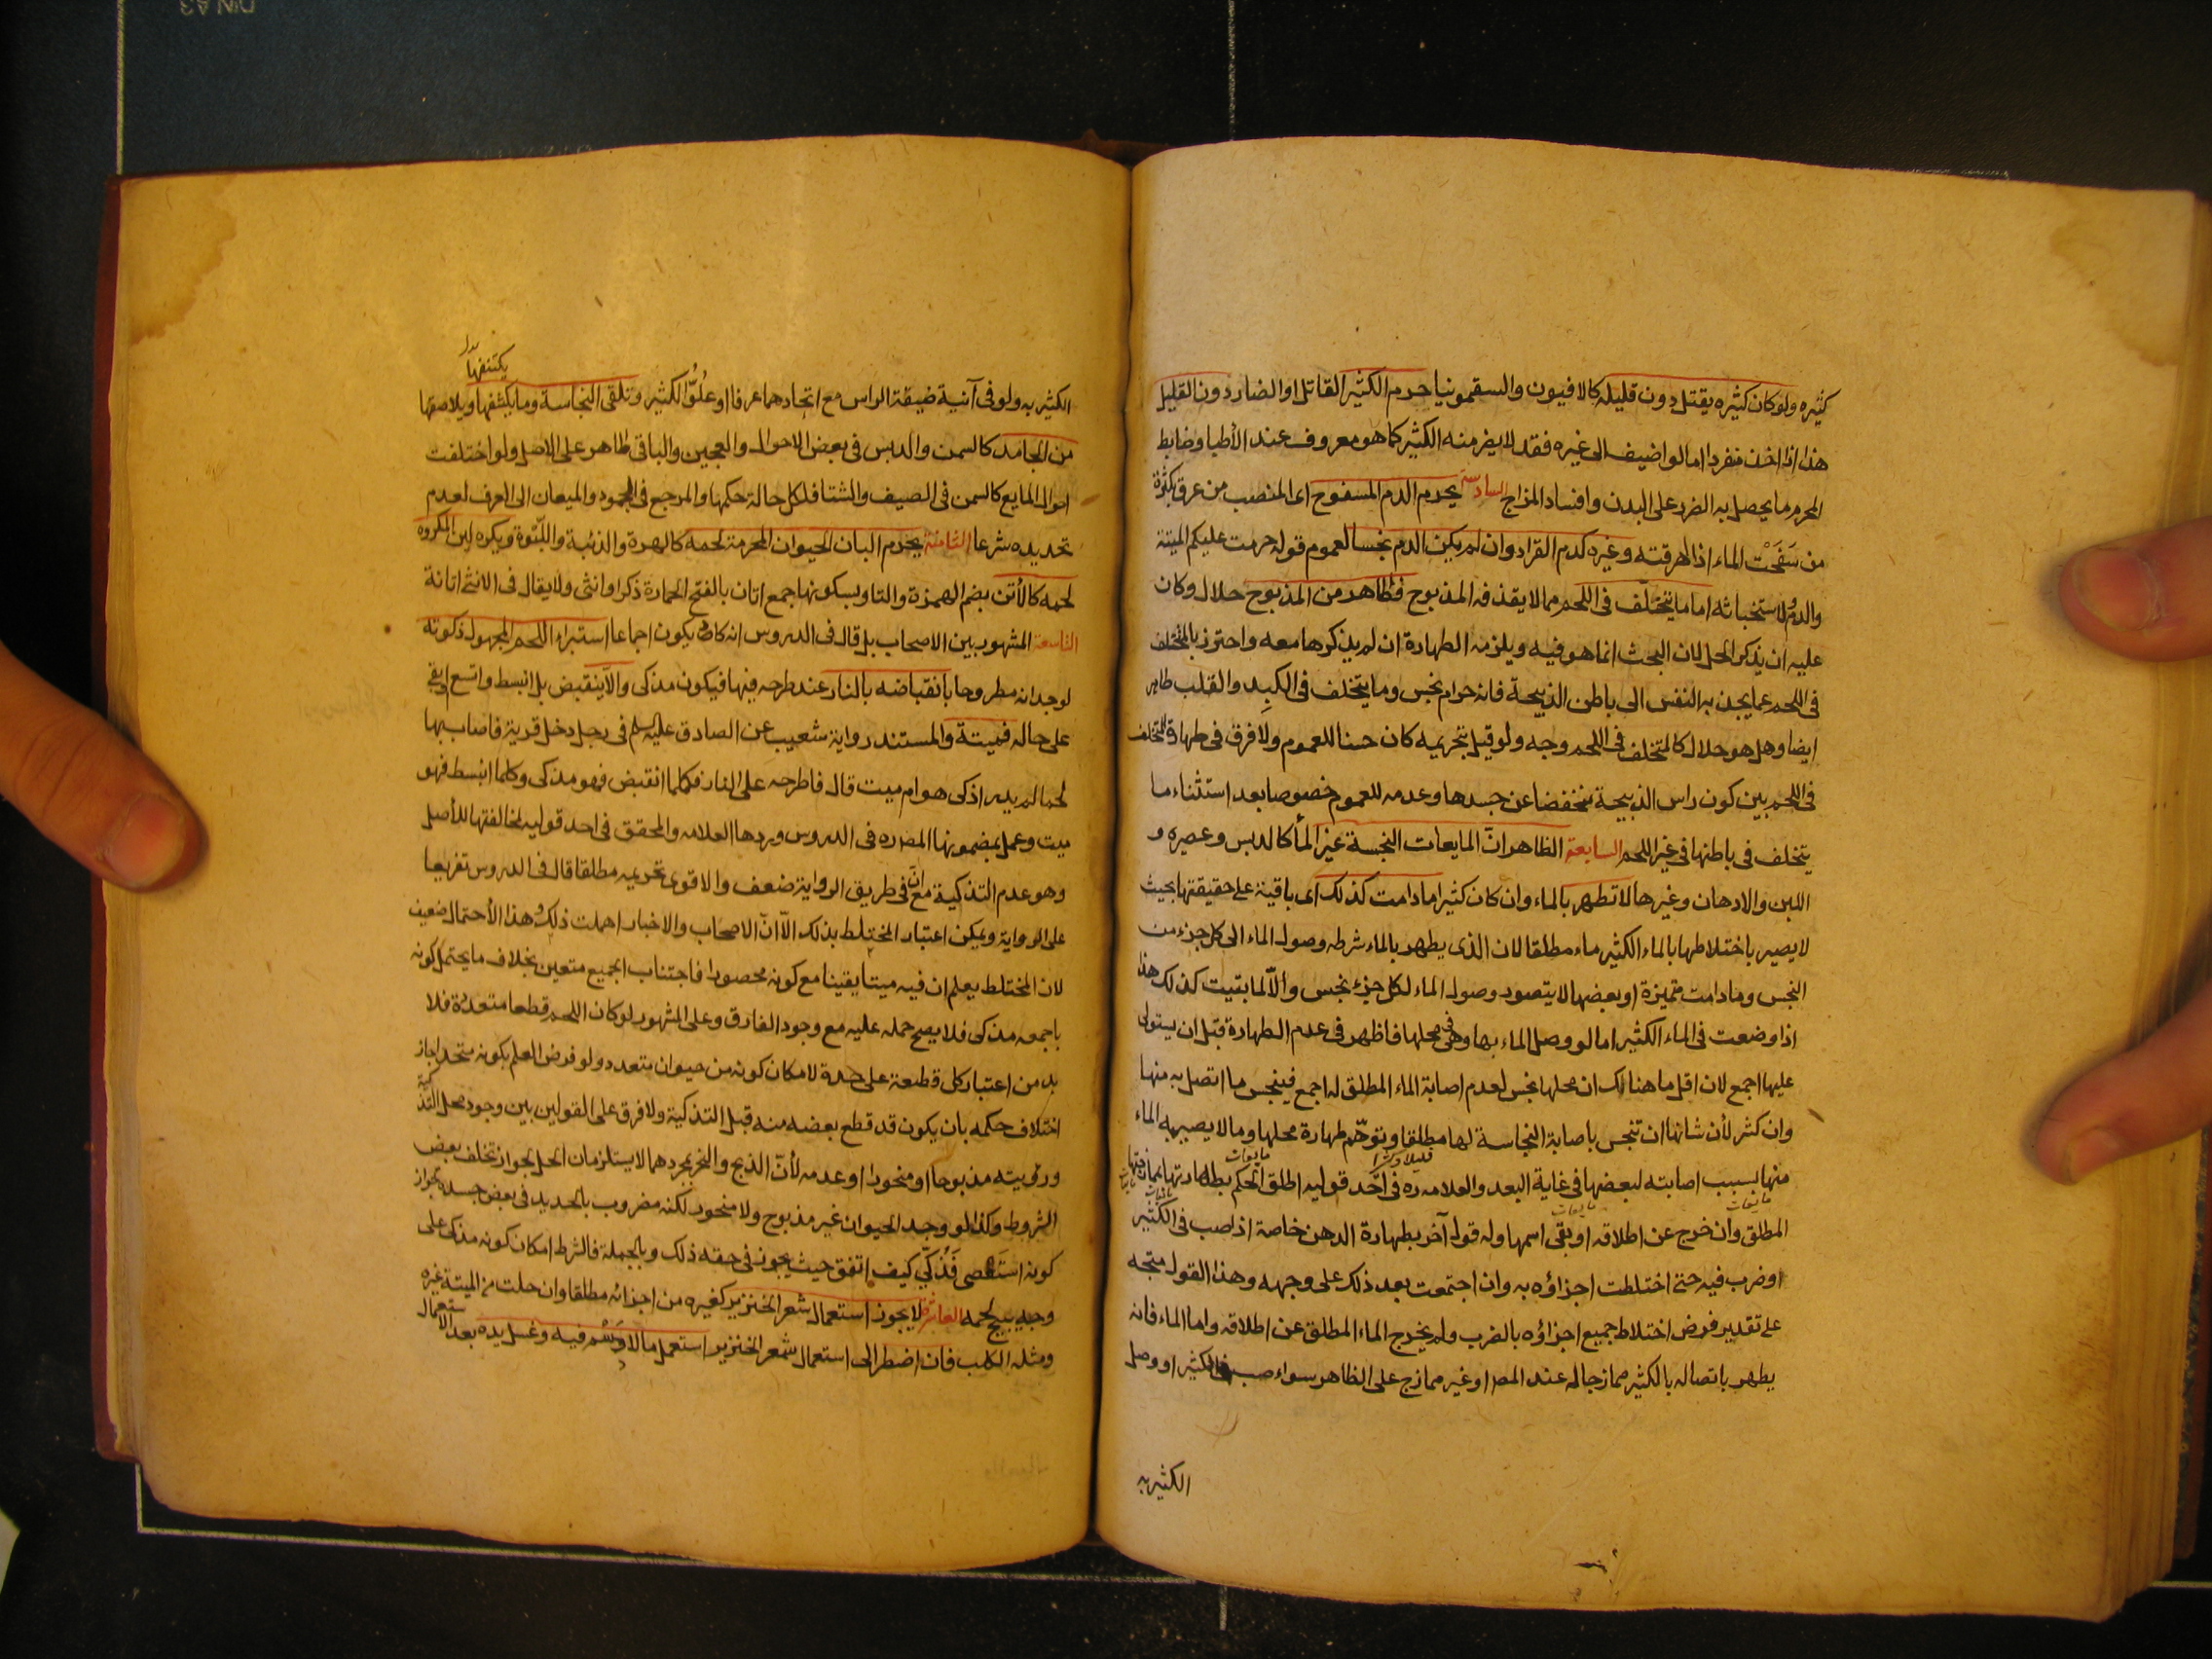 كثيره ولو كان كثيره يقتل دون قليله كالافيون والسقمونيا حرم الكثير القاتل او الضار دون القليل
هذا اذا اخذ منفردا اما لو اضيف الى غيره فقد لا يضر منه الكثير كما هو معروف عند الأطبا وضابط
المحرم ما يحصل به الضرر على البدن وافساد المزاج السادسة يحرم الدم المسفوح اى المنصب من عرق بكثرة
من سَفَحْت الماء اذا اهرقته وغيره كدم القراد وان لم يكن الدم نجسا لعموم قوله حرمت عليكم الميتة
والدم ولاستخباثه اما ما يتخلّف فى اللحم مما لا يقذفه المذبوح فطاهر من المذبوح حلال وكان
عليه ان يذكر الحل لان البحث انما هو فيه ويلزمه الطهارة ان لم يذكرها معه واحترز بالمتخلف
فى اللحم عما يجذبه النفس الى باطن الذبيحة فانه حرام نجس وما يتخلف فى الكبِد والقلب طاهر
ايضا وهل هو حلال كالمتخلف فى اللحم وجه ولو قيل بتحريمه كان حسنا للعموم ولا فرق فى طهارة المتخلف
فى اللحم بين كون راس الذبيحة منخفضا عن جسدها وعدمه للعموم خصوصا بعد استثناء ما
يتخلف فى باطنها فى غير اللحم السابعة الظاهر انّ المايعات النجسة غير الماء كالدبس وعصيره و
اللبن والادهان وغيرها لا تطهر بالماء وان كان كثيرا ما دامت كذلك اى باقية على حقيقتها بحيث
لا يصير باختلاطها بالماء الكثير ماء مطلقا لان الذى يطهر بالماء شرطه وصول الماء الى كل جزء من
النجس وما دامت متميزة او بعضها لا يتصور وصول الماء لكل جزء نجس والّا لما بقيت كذلك هذا
اذا وضعت فى الماء الكثير اما لو وصل الماء بها وهى فى محلها فاظهر فى عدم الطهارة قبل ان يستولى
عليها اجمع لان اقل ما هنالك ان محلها نجس لعدم اصابة الماء المطلق له اجمع فينجس ما اتصل به منها
وان كثر لأن شانها ان تنجس باصابة النجاسة لها مطلقا وتوهّم طهارة محلها وما لا يصيبه الماء
قليلا وكثيرا مايعات
منها بسبب اصابته لبعضها فى غاية البعد والعلامه ره فى احَد قوليه اطلق الحكم بطهارتها بممازجتها
المطلق وان خرج عن اطلاقه او بقى اسمها وله قول آخر بطهارة الدهن خاصة اذا صب فى الكثير
او ضرب فيه حتى اختلطت اجزاؤه به وان اجتمعت بعد ذلك على وجهه وهذا القول متجه
على تقدير فرض اختلاط جميع اجزاؤه بالضرب ولم يخرج الماء المطلق عن اطلاقه واما الماء فانه
يطهر باتصاله بالكثير ممازجا له عند المص او غير ممازج على الظاهر سواء صب فى الكثير او وصل
الكثير به
يكتنفها بدل
الكثير به ولو فى آنية ضيقة الراس مع اتحادهما عرفا او علُوُّ الكثير وتلقى النجاسة وما يكثفها ويلاصقها
من الجامد كالسمن والدبس فى بعض الاحوال والعجين والباقى طاهر على الاصل ولو اختلفت
احوال المايع كالسمن فى الصيف والشتا فلكل حالة حكمها والمرجع فى الجمود والميعان الى العرف لعدم
تحديده شرعا الثامنة يحرم البان الحيوان المحرمة لحمه كالهرة والذئبة واللبُوة ويكره لبن المكروه
لحمه كالأتن بضم الهمزة والتا وبسكونها جمع اتان بالفتح الحمارة ذكرا وانثى ولا يقال فى الانثى اتانة
التاسعة المشهور بين الاصحاب بل قال فى الدروس انه كاد ان يكون اجماعا استبراء اللحم المجهول ذكوته
لوجدانه مطروحا بانقباضه بالنار عند طرحه فيها فيكون مذكى والّا ينقبض بل انبسط واتسع او بقى
على حاله فميتة والمستند رواية شعيب عن الصادق عليه السلم فى رجل دخل قرية فاصاب بها
لحما لم يدر اذكى هو ام ميت قال فاطرحه على النار فكلما انقبض فهو مذكى وكلما انبسط فهو
ميت وعمل بمضمونها المص ره فى الدروس وردها العلامه والمحقق فى احد قوليه لمخالفتها للأصل
وهو عدم التذكية مع انّ فى طريق الرواية ضعف والاقوى تحريمه مطلقا قال فى الدروس تفريعا
على الرواية ويمكن اعتبار المختلط بذلك الّا انّ الاصحاب والاخبار اهملت ذلك وهذا الأحتمال ضعيف
لان المختلط يعلم ان فيه ميتا يقينا مع كونه محصورا فاجتناب الجميع متعين بخلاف ما يحتمل كونه
باجمعه مذكى فلا يصح حمله عليه مع وجود الفارق وعلى المشهور لو كان اللحم قطعا متعددة فلا
بد من اعتبار كل قطعة على حدة لامكان كونه من حيوان متعدد ولو فرض العلم بكونه متحدا جاز
اختلاف حكمه بان يكون قد قطع بعضه منه قبل التذكية ولا فرق على القولين بين وجود محل التذكية
ورؤيته مذبوحا او منحورا وعدمه لأنّ الذبح والنحر بمجردهما لا يستلزمان الحل لجواز تخلف بعض
الشروط وكذا لو وجد الحيوان غير مذبوح ولا منحور لكنه مضروب بالحديد فى بعض جسده لجواز
كونه استَعْصى فَذُكّي كيف اتفق حيث يجوز فى حقه ذلك وبالجملة فالشرط امكان كونه مذكى على
وجه يبيح لحمه العاشرة لا يجوز استعمال شعر الخنزير كغيره من اجزائه مطلقا وان حلت من الميتة غيره
ومثله الكلب فان اضطر الى استعمال شعر الخنزير استعمل ما لا دَسَم فيه وغسل يده بعد الاستعمال